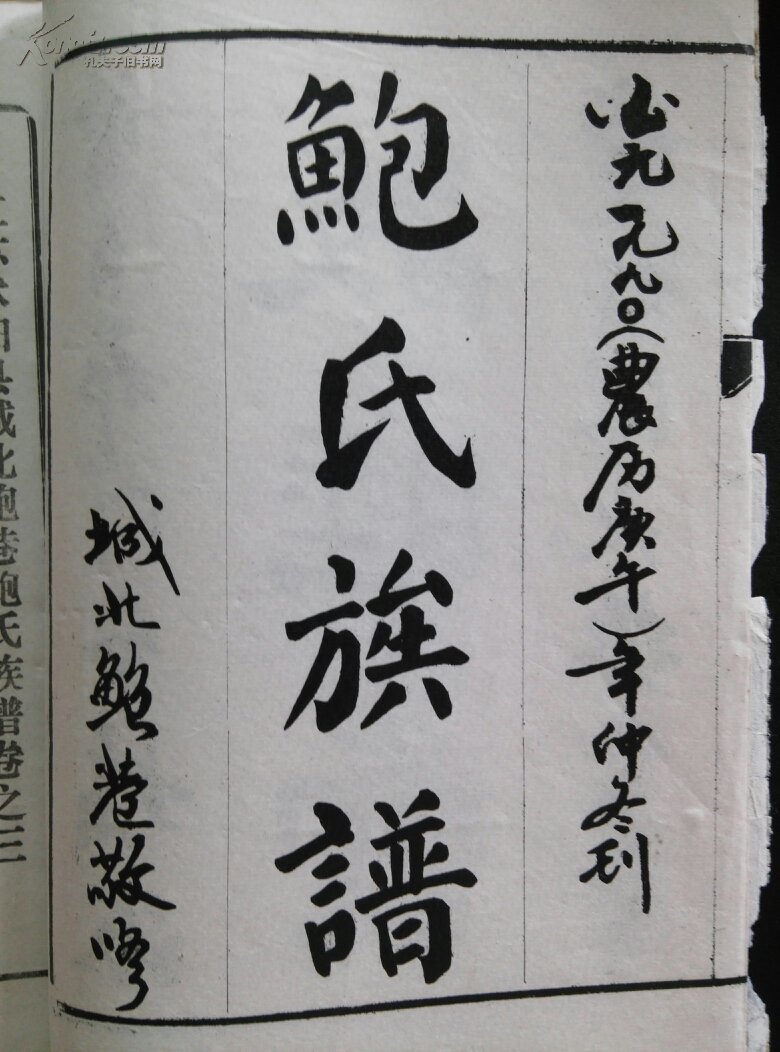 公元一九九〇（農历庚午）年仲冬刊
鮑氏族譜
城北鮑巷敬修
县城北鲍巷鲍氏族谱卷之三
孔夫子旧书网